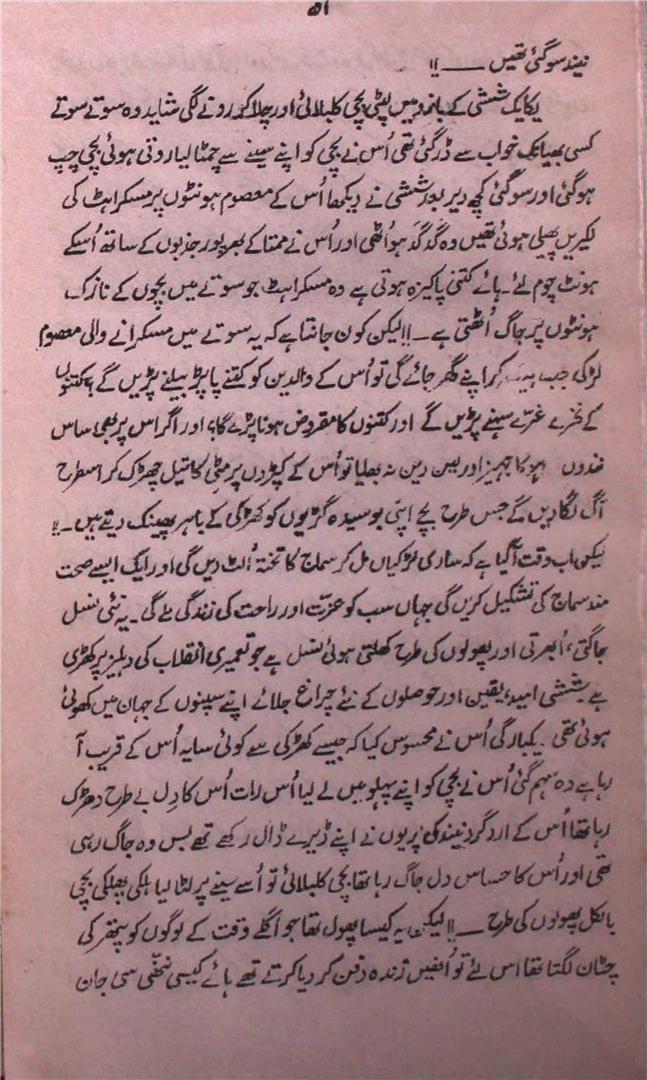 ۵۱
نیند سو گئی تھیں ــــ !!
یکایک ششی کے بازو میں لپٹی بچی کلبلائی اور چلا کر رونے لگی شاید وہ سوتے سوتے
کسی بھیانک خواب سے ڈر گئی تھی اُس نے بچی کو اپنے سینے سے چمٹا لیا روتی ہوئی بچی چپ
ہو گئی اور سو گئی کچھ دیر بعد ششی نے دیکھا اُس کے معصوم ہونٹوں پر مسکراہٹ کی
لکیریں پھیلی ہوئی تھیں وہ گدگد ہو اُٹھی اور اُس نے ممتا کے بھرپور جذبوں کے ساتھ اُسکے
ہونٹ چوم لئے۔ ہائے کتنی پاکیزہ ہوتی ہے وہ مسکراہٹ جو سوتے میں بچوں کے نازک
ہونٹوں پر جاگ اُٹھتی ہے ـ !! لیکن کون جانتا ہے کہ یہ سوتے میں مسکرانے والی معصوم
لڑکی جب بیاہ کر اپنے گھر جائے گی تو اُس کے والدین کو کتنے پاپڑ بیلنے پڑیں گے ؟ کتنوں
کے نخرے غرّے سہنے پڑیں گے اور کتنوں کا مقروض ہونا پڑے گا؟ اور اگر اس پر بھی ساس
نندوں بہو کا جہیز اور لین دین نہ بھایا تو اُس کے کپڑوں پر مٹی کا تیل چھڑک کر اسطرح
آگ لگا دیں گے جس طرح بچے اپنی بوسیدہ گڑیوں کو کھڑکی کے باہر پھینک دیتے ہیں ـ !!
لیکن اب وقت آگیا ہے کہ ساری لڑکیاں مل کر سماج کا تختہ اُلٹ دیں گی اور ایک ایسے صحت
مند سماج کی تشکیل کریں گی جہاں سب کو عزت اور راحت کی زندگی ملے گی۔ یہ نئی نسل
جاگتی، اُبھرتی اور پھولوں کی طرح کھلتی ہوئی نسل ہے جو تعمیری انقلاب کی دہلیز پر کھڑی
ہے۔ ششی امید، یقین اور حوصلوں کے نئے چراغ جلائے اپنے سپنوں کے جہان میں کھوئی
ہوئی تھی۔ یکبارگی اُس نے محسوس کیا کہ جیسے کھڑکی سے کوئی سایہ اُس کے قریب آ
رہا ہے وہ سہم گئی اُس نے بچی کو اپنے پہلو میں لے لیا اُس رات اُس کا دِل بے طرح دھڑک
رہا تھا اُس کے اردگرد نیند کی پریوں نے اپنے ڈیرے ڈال رکھے تھے بس وہ جاگ رہی
تھی اور اُس کا حساس دل جاگ رہا تھا بچی کلبلائی تو اُسے سینے پر لٹا لیا ہلکی پھلکی بچی
بالکل پھولوں کی طرح ــــ !! لیکن یہ کیسا پھول تھا جو اگلے وقت کے لوگوں کو پتھر کی
چٹان لگتا تھا اس لئے تو اُنھیں زندہ دفن کر دیا کرتے تھے ہائے کیسی ننھّی سی جان